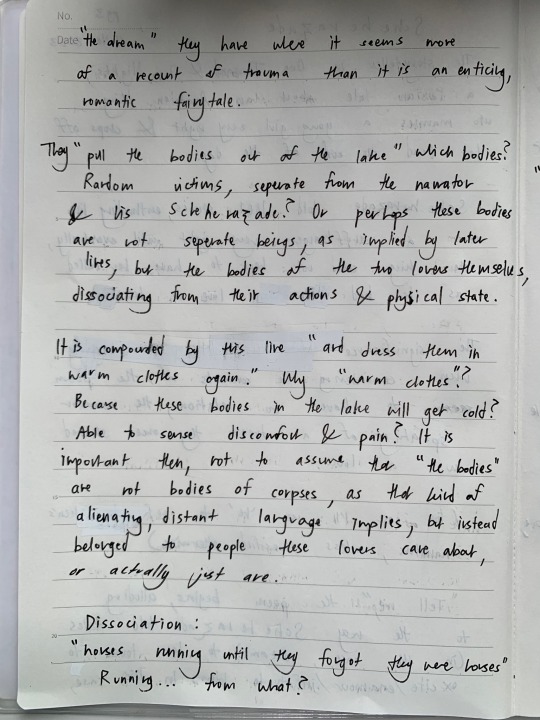 No.
Date "the dream" they have where it seems more
of a recount of trauma than it is an enticing,
romantic fairytale.
They "pull the bodies out of the lake" which bodies?
Random victims, seperate from the narrator
& his Scheherazade? Or perhaps these bodies
are not seperate beings, as implied by later
lines, but the bodies of the two lovers themselves,
dissociating from their actions & physical state.
It is compounded by this line "and dress them in
warm clothes again." Why "warm clothes"?
Because these bodies in the lake will get cold?
Able to sense discomfort & pain? It is
important then, not to assume that "the bodies"
are not bodies of corpses, as that kind of
alienating, distant language implies, but instead
belonged to people these lovers care about,
or actually just are.
Dissociation:
"horses running until they forgot they were horses"
Running... from what?